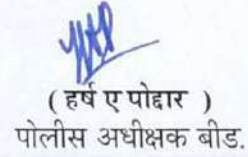 ( हर्ष ए पोद्दार )
पोलीस अधीक्षक बीड.